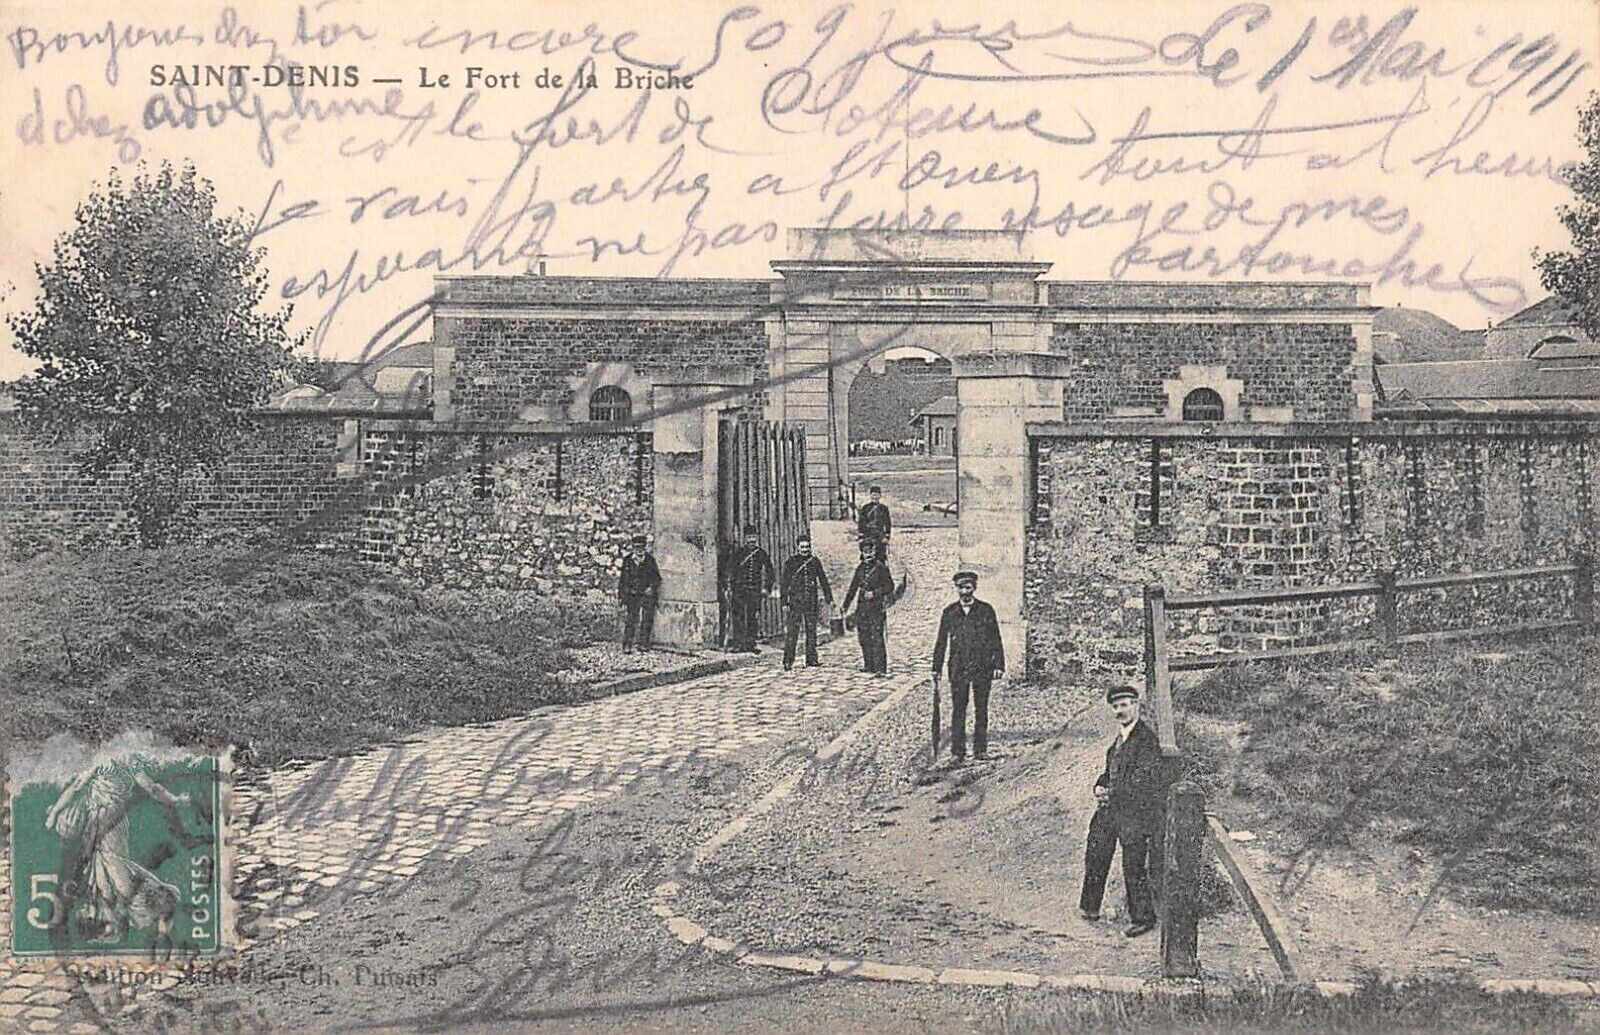 Bonjour chez toi encore 509 jours Le 1er Mai 1911
SAINT-DENIS — Le Fort de la Briche
et chez Adolphine
c'est le fort de
Je vais partir a St Ouen tout al heure
esperant ne pas faire usage de mes
cartouches
FORT DE LA BRICHE
Mille baisers
5
POSTES
Edition Nouvelle, Ch. Puisais